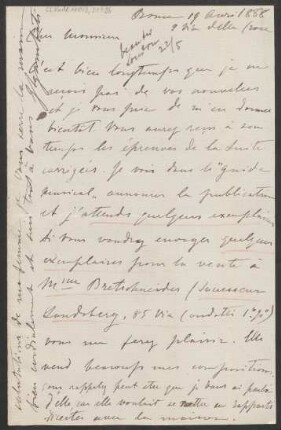 Rome 19 Avril 1888
2 Via della Croce
Cher Monsieur
C'est bien longtemps que je ne
reçois pas de vos nouvelles
et je vous prie de m'en donner
bientôt. Vous aurez reçu à son
temps les épreuves de la Suite
corrigées. Je vois dans le "Guide
musical" annoncer la publication
et j'attends quelques exemplaires
Si vous voudrez envoyer quelques
exemplaires pour la vente à
Mme Bretschneider (Successeur
Landsberg, 85 Via Condotti 1er)
vous me ferez plaisir. Elle
vend beaucoup mes compositions,
vous rappelez peut être que je vous ai parlé
d'elle car elle voulait se mettre en rapports
directes avec la maison.
salutations de ma femme. Je vous serre la main
bien cordialement et suis tout à vous
GSgambati